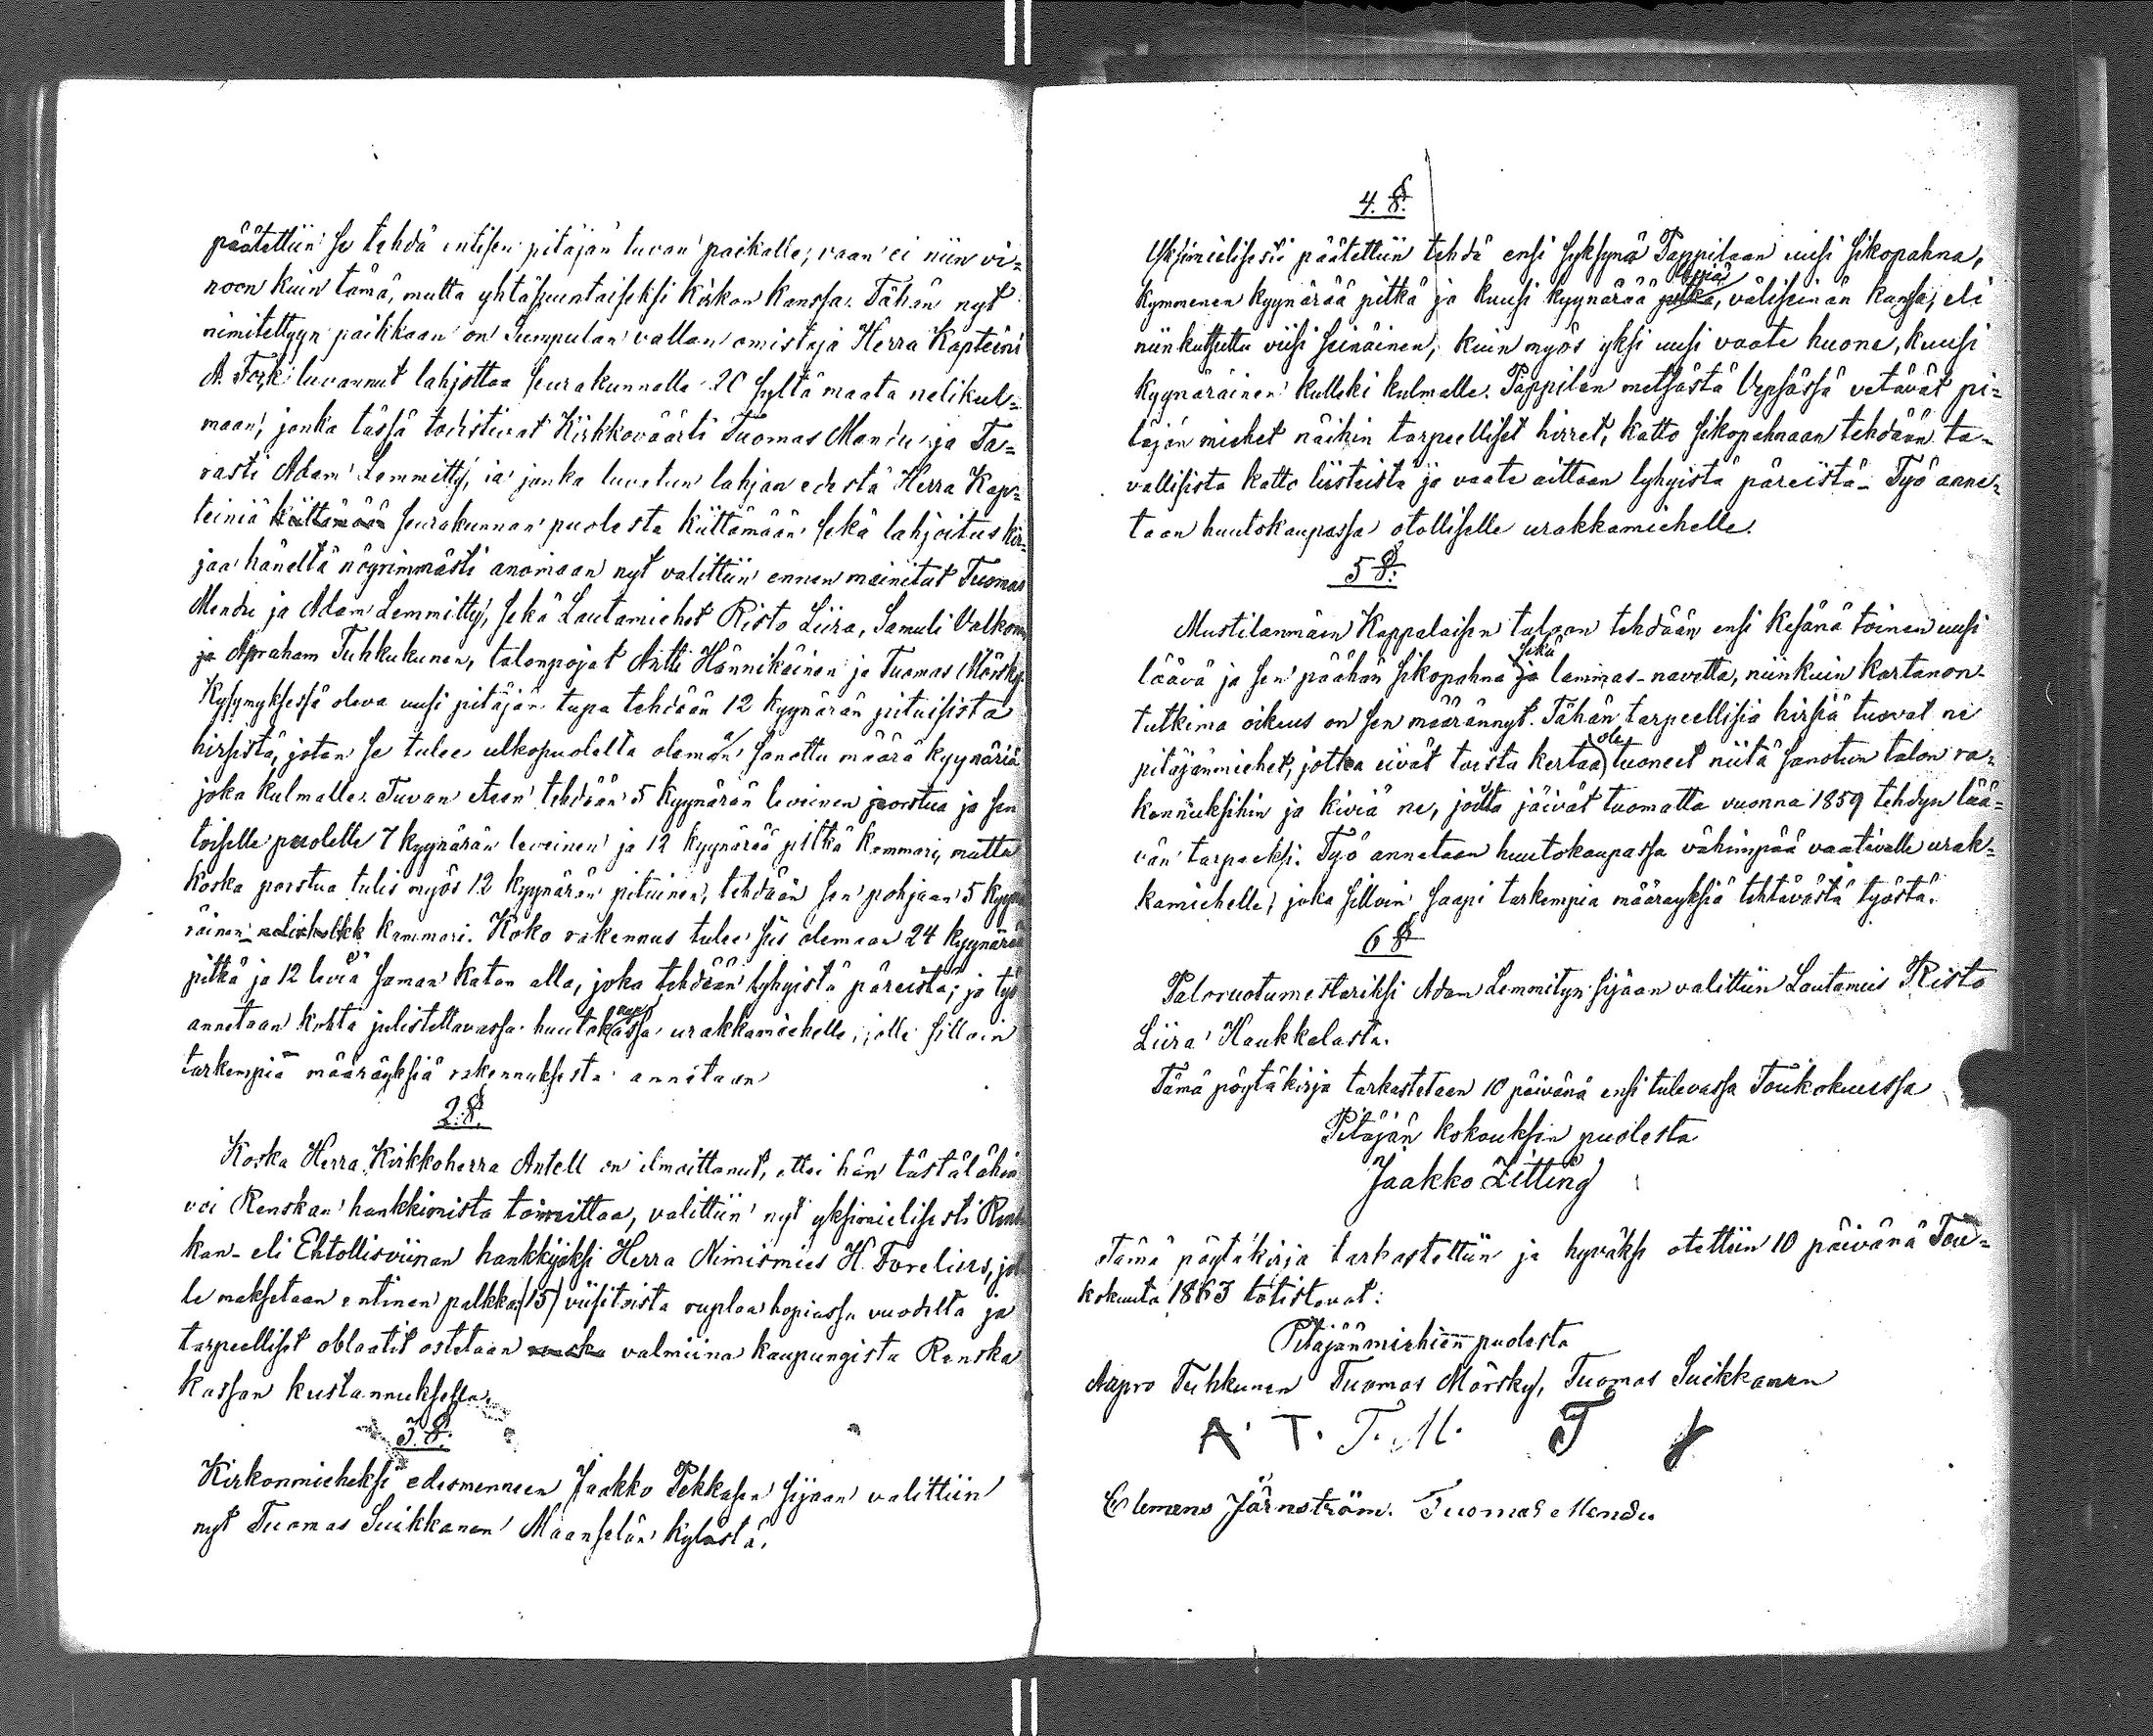 päätettiin se tehdä entisen pitäjän tuvan paikalle; vaan ei niin vi=
noon kuin tämä, mutta yhtäsuuntaiseksi kirkon kanssa. Tähän nyt
nimitettyyn paikkaan on Sumpulan vallan omistaja Herra Kapteini
A. Fock luvannut lahjottaa seurakunnalle 20 syltä maata nelikul=
maan, jonka tässä todistivat Kirkkoväärti Tuomas Mendu ja Ta=
rasti Adam Lemmitty, ja jonka luvatun lahjan edestä Herra Kap=
teiniä kiittämään seurakunnan puolesta kiittämään sekä lahjoitus kir=
jaa häneltä nöyrimmästi anomaan nyt valittiin ennen mainitut Tuomas
Mendu ja Adam Lemmitty, sekä Lautamiehet Risto Liira, Samuli Valkonen
ja Apraham Tuhkukunen, talonpojat Antti Hännikäinen ja Tuomas Mörsky.
Kysymyksessä oleva uusi pitäjän tupa tehdään 12 kyynärän pituisista
hirsistä, joten se tulee ulkopuolelta olemän sanottu määrä kyynäriä
joka kulmalle. Tuvan eteen tehdään 5 kyynärän leveinen porstua ja sen
toiselle puolelle 7 kyynärän leveinen ja 12 kyynärää pitkä kammari, mutta
koska porstua tulis myös 12 kyynärän pituinen, tehdään sen pohjaan 5 kyynä
räinen kammari. Koko rakennus tulee siis olemaan 24 kyynärää
pitkä ja 12 leviä saman katon alla, joka tehdään lyhyistä päreistä; ja työ
annetaan kohta julistettavassa huutokaupassa urakkamiehelle, jolle silloin
tarkempia määräyksiä rakennuksesta annetaan
2.§.
Koska Herra Kirkkoherra Antell on ilmoittanut, ettei hän tästälähin
voi Renskan hankkimista toimittaa, valittiin nyt yksimielisesti Rens
kan- eli Ehtollisviinan hankkijaksi Herra Nimismies H. Forelius, jol
le maksetaan entinen palkka (15) viisitoista ruplaa hopiassa vuodelta ja
tarpeelliset oblaatit ostetaan valmiina kaupungista Renska
kassan kustannuksella.
3.§.
Kirkonmieheksi edesmenneen Jaakko Pekkasen sijaan valittiin
nyt Tuomas Suikkanen Maanselän kylästä.
4.§.
Yksimielisesti päätettiin tehdä ensi syksynä Pappilaan uusi sikopahna,
kymmenen kyynärää pitkä ja kuusi kyynärää leviä pitkä, väliseinän kanssa, eli
niin kutsuttu viisi seinäinen, kuin myös yksi uusi vaate huone, kuusi
kyynäräinen kulleki kulmalle. Pappilan metsästä Vepsässä vetävät pi=
täjän miehet näihin tarpeelliset hirret, katto sikopahnaan tehdään ta=
vallisista katto liisteistä ja vaate aittaan lyhyistä päreistä - Työ anne=
taan huutokaupassa otolliselle urakkamiehelle.
5 §.
Mustilanmäen Kappalaisen taloon tehdään ensi kesänä toinen uusi
läävä ja sen päähän sikopahna sekä ja lammas-navetta, niinkuin kartanon-
tutkima oikeus on sen määrännyt. Tähän tarpeellisia hirsiä tuovat ne
pitäjänmiehet, jotka eivät toista kertaa ole tuoneet niitä sanotun talon ra=
kennuksihin ja kiviä ne, joilta jäivät tuomatta vuonna 1859 tehdyn lää=
vän tarpeeksi. Työ annetaan huutokaupassa vähimpää vaativalle urak=
kamiehelle, joka silloin saapi tarkempia määräyksiä tehtävästä työstä.
6 §
Paloruotumestariksi Adam Lemmityn sijaan valittiin Lautamies Risto
Liira Haukkalasta.
Tämä pöytäkirja tarkastetaan 10 päivänä ensi tulevassa Toukokuussa
Pitäjän kokouksen puolesta
Jaakko Zitting
Tämä pöytäkirja tarkastettiin ja hyväksi otettiin 10 päivänä Tou=
kokuuta 1863 totistavat:
Pitäjänmiehien puolesta
Aapro Tuhkunen Tuomas Mörsky, Tuomas Suikkanen
A. T. T. M. T
Clemens Järnström. Tuomas Mendu